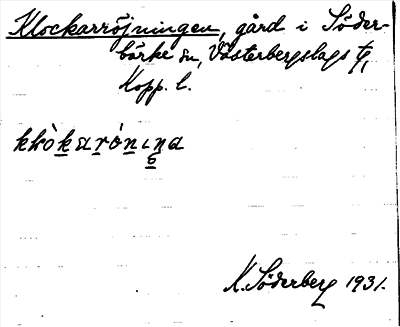 Klockarröjningen, gård i Söder-
bärke sn, Västerbergslags tg,
Kopp. l.
K. Söderberg 1931.